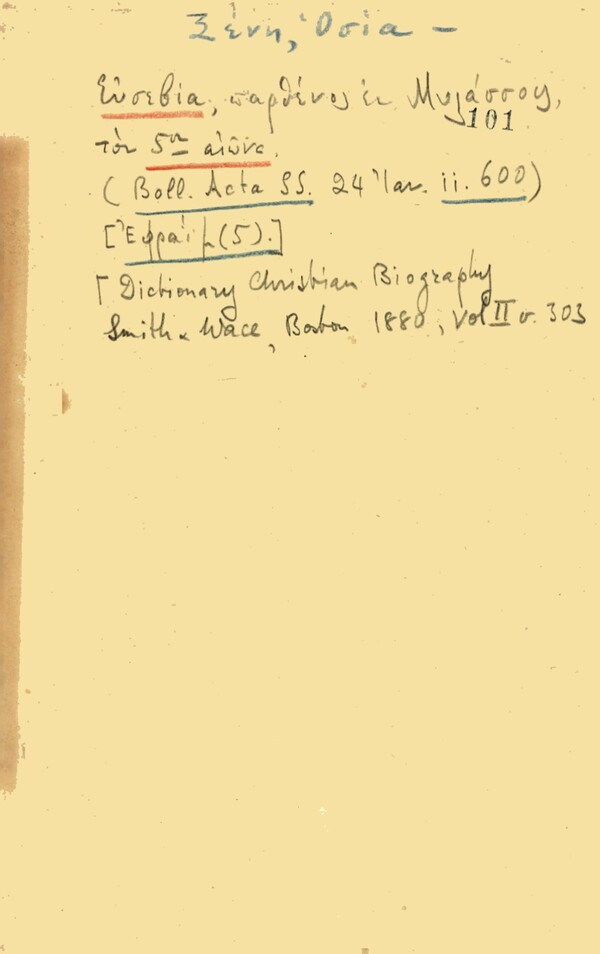 Ξένη, Ὁσία –
Εὐσεβία, παρθένος ἐκ Μυλάσσου,
101
τὸν 5ον αἰῶνα.
( Boll. Acta SS. 24 Ἰαν. ii. 600)
[Ἐφραίμ (5).]
[ Dictionary Christian Biography
Smith & Wace, Boston 1880, Vol II σ. 303